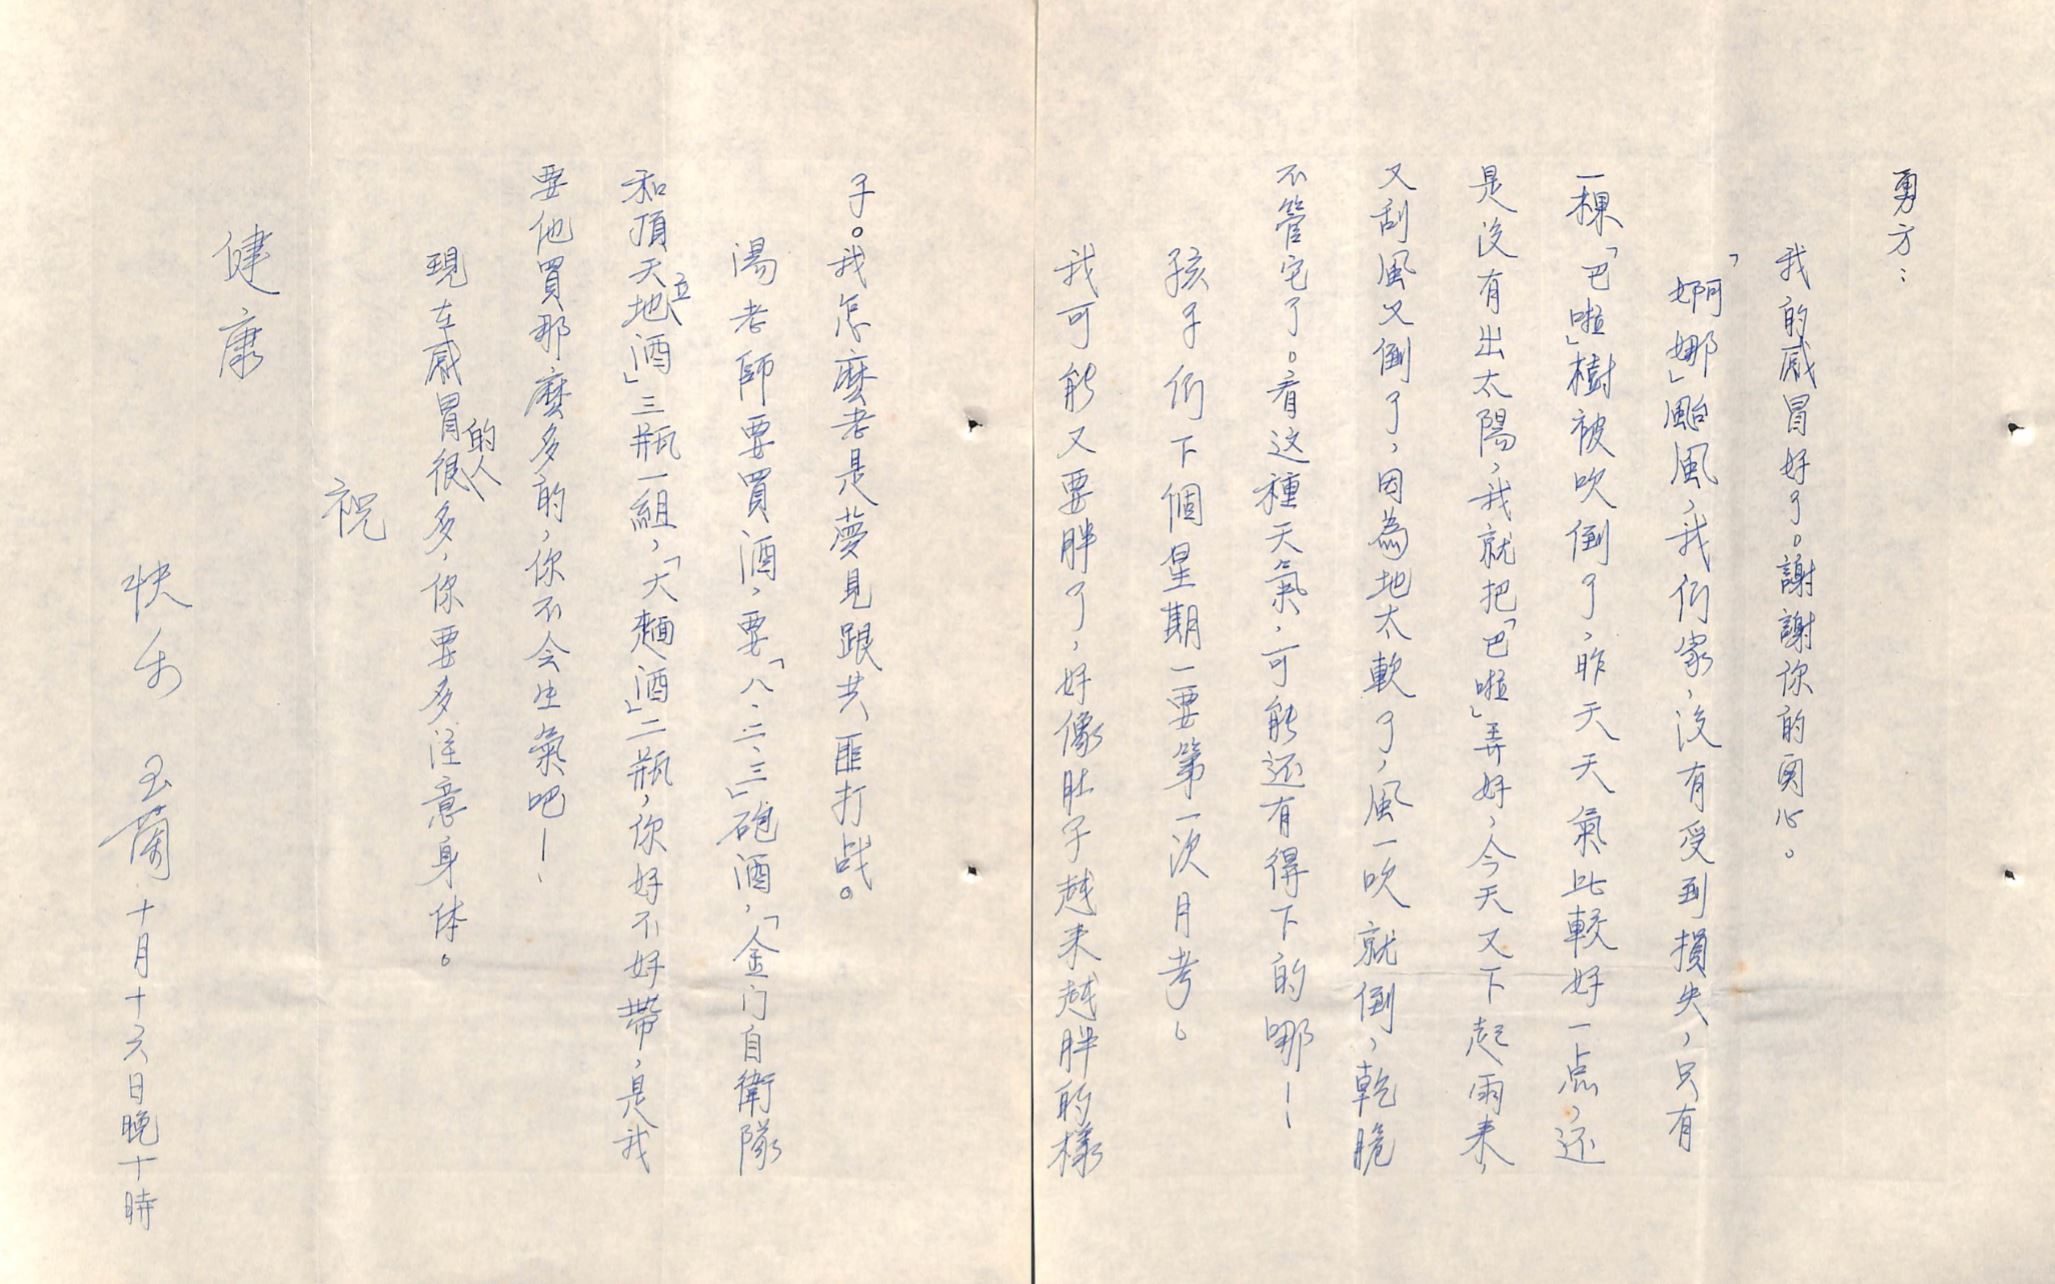 勇方：
我的感冒好了。謝謝你的関心。
「婀娜」颱風，我们家，沒有受到損失，只有
一棵「巴啦」樹被吹倒了，昨天天氣比較好一点，还
是沒有出太陽，我就把「巴啦」弄好，今天又下起雨來，
又刮風又倒了，因為地太軟了，風一吹就倒，乾脆
不管它了。看这種天氣，可能还有得下的哪！
孩子们下個星期一要第一次月考。
我可能又要胖了，好像肚子越来越胖的樣
子。我怎麼老是夢見跟共匪打战。
湯老師要買酒，要「八、二、三」砲酒，「金门自衛隊
和頂天立地酒」三瓶一組，「大麵酒」二瓶，你好不好帶，是我
要他買那麼多的，你不会生氣吧！
現在感冒的人很多，你要多注意身体。
祝
健康
快乐 玉蘭 十月十六日晚十時